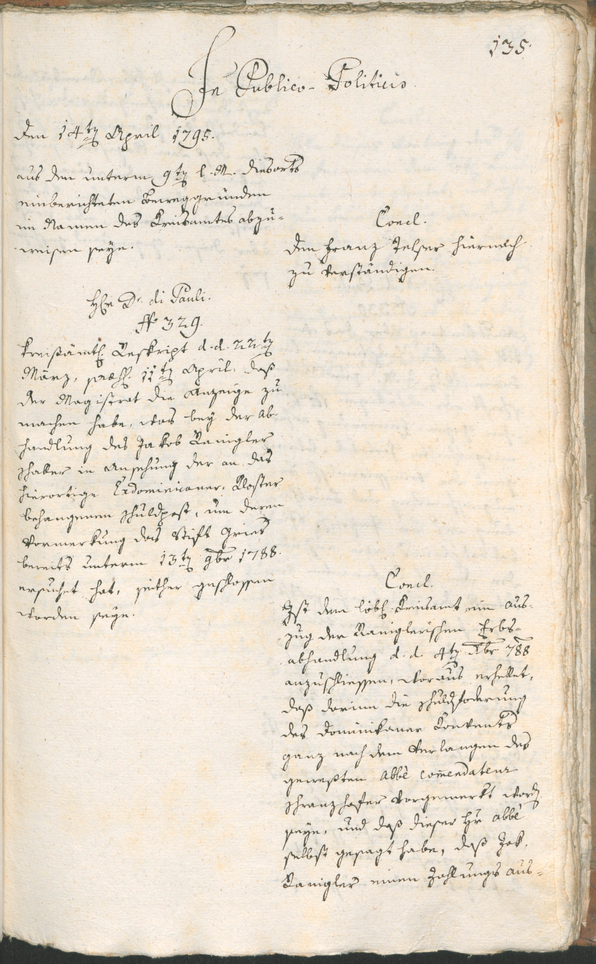 135.
In Publico-Politicis.
den 14ty April 1795.
aus den unterm 9ty l. M. diesorts
einberichteten Beweggründen
im Namen des Kreisamtes abzu-
weisen seye.
Concl.
den Franz Felser hiernach
zu verständigen.
Hr. Dr. di Pauli.
N 329.
Kreisämtl. Reskript d. d. 22ty
März, praes. 11ty April, daß
der Magistrat die Anzeige zu
machen habe, was bey der Ab-
handlung des Jakob Ranigler
in Ansehung der an das
hierortige Exdominicaner-Kloster
behangenen Schuldpost, um deren
Vormerkung das Stift Gries
bereits unterm 13ty 9br 1788.
ersucht hat, seither geschlossen
worden seye.
Concl.
Ist dem löbl. Kreisamt ein Aus-
zug der Raniglerischen Erbs-
abhandlung d. d. 4ty Xbr 788
anzuschliessen, woraus erhellet,
daß darinn die Schuldfoderung
des Dominikaner Konvents
ganz nach dem Verlangen des
gewesten Abbé Comendateur
Schranzhofer vorgemerkt word.
seye, und daß dieser Hr. Abbé
selbst gesagt habe, daß Jak.
Ranigler einen Zahlungs aus-